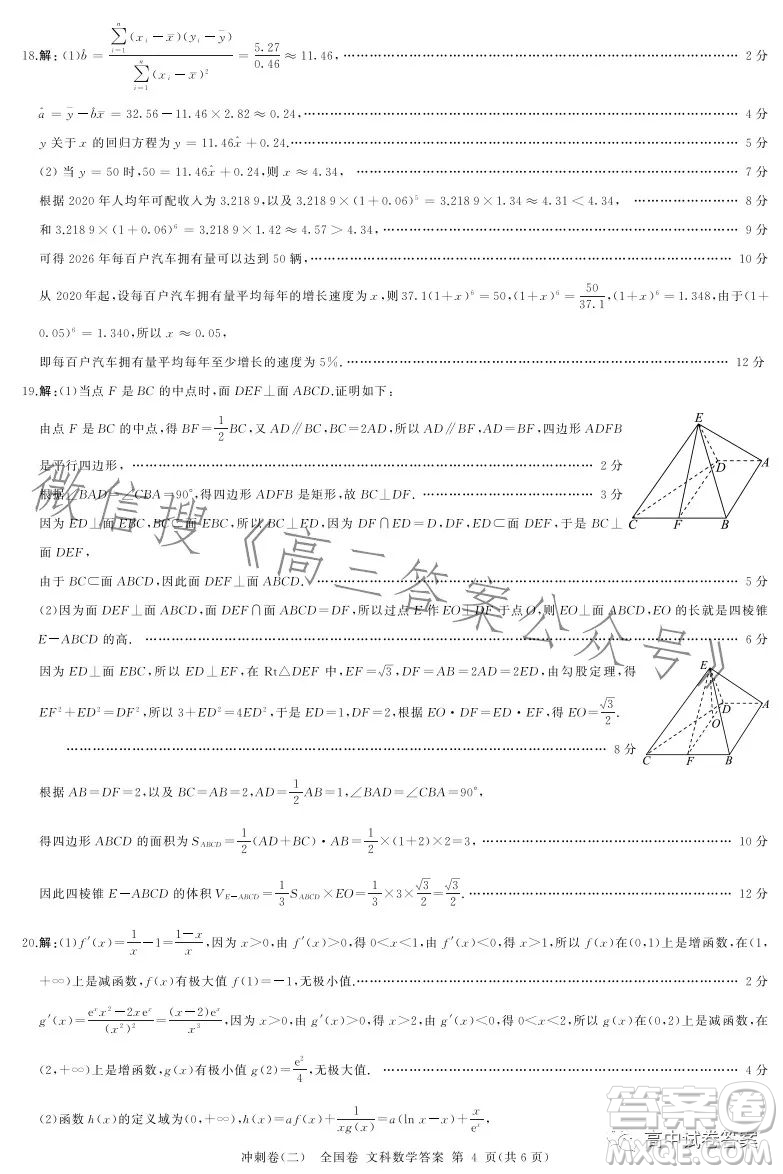 18.解:(1)b̂ = \frac{\sum_{i=1}^{n}(x_i-\bar{x})(y_i-\bar{y})}{\sum_{i=1}^{n}(x_i-\bar{x})^2} = \frac{5.27}{0.46} ≈ 11.46, …… 2 分
â = ȳ − b̂x̄ = 32.56−11.46×2.82 ≈ 0.24, …… 4 分
y 关于 x 的回归方程为 y = 11.46x̂+0.24. …… 5 分
(2) 当 y = 50 时,50 = 11.46x̂+0.24,则 x ≈ 4.34, …… 7 分
根据 2020 年人均年可配收入为 3.218 9,以及 3.218 9×(1+0.06)⁵ = 3.218 9×1.34 ≈ 4.31 < 4.34, …… 8 分
和 3.218 9×(1+0.06)⁶ = 3.218 9×1.42 ≈ 4.57 > 4.34, …… 9 分
可得 2026 年每百户汽车拥有量可以达到 50 辆, …… 10 分
从 2020 年起,设每百户汽车拥有量平均每年的增长速度为 x,则 37.1(1+x)⁶ = 50,(1+x)⁶ = \frac{50}{37.1},(1+x)⁶ = 1.348,由于(1+
0.05)⁶ = 1.340,所以 x ≈ 0.05,
即每百户汽车拥有量平均每年至少增长的速度为 5%. …… 12 分
19.解:(1)当点 F 是 BC 的中点时,面 DEF⊥面 ABCD.证明如下:
由点 F 是 BC 的中点,得 BF=\frac{1}{2}BC,又 AD∥BC,BC=2AD,所以 AD∥BF,AD=BF,四边形 ADFB
是平行四边形, …… 2 分
根据∠BAD=∠CBA=90°,得四边形 ADFB 是矩形,故 BC⊥DF. …… 3 分
因为 ED⊥面 EBC,BC⊂面 EBC,所以 BC⊥ED,因为 DF∩ED=D,DF,ED⊂面 DEF,于是 BC⊥
面 DEF,
由于 BC⊂面 ABCD,因此面 DEF⊥面 ABCD. …… 5 分
E
D
A
C
F
B
(2)因为面 DEF⊥面 ABCD,面 DEF∩面 ABCD=DF,所以过点 E 作 EO⊥DF 于点 O,则 EO⊥面 ABCD,EO 的长就是四棱锥
E−ABCD 的高. …… 6 分
因为 ED⊥面 EBC,所以 ED⊥EF,在 Rt△DEF 中,EF=√3,DF=AB=2AD=2ED,由勾股定理,得
EF²+ED²=DF²,所以 3+ED²=4ED²,于是 ED=1,DF=2,根据 EO·DF=ED·EF,得 EO=\frac{√3}{2}.
…… 8 分
E
D
A
O
C
F
B
根据 AB=DF=2,以及 BC=AB=2,AD=\frac{1}{2}AB=1,∠BAD=∠CBA=90°,
得四边形 ABCD 的面积为 S_{ABCD}=\frac{1}{2}(AD+BC)·AB=\frac{1}{2}×(1+2)×2=3, …… 10 分
因此四棱锥 E−ABCD 的体积 V_{E−ABCD}=\frac{1}{3}S_{ABCD}×EO=\frac{1}{3}×3×\frac{√3}{2}=\frac{√3}{2}. …… 12 分
20.解:(1)f′(x)=\frac{1}{x}−1=\frac{1−x}{x},因为 x>0,由 f′(x)>0,得 0<x<1,由 f′(x)<0,得 x>1,所以 f(x)在(0,1)上是增函数,在(1,
+∞)上是减函数,f(x)有极大值 f(1)=−1,无极小值. …… 2 分
g′(x)=\frac{e^x x²−2xe^x}{(x²)²}=\frac{(x−2)e^x}{x³},因为 x>0,由 g′(x)>0,得 x>2,由 g′(x)<0,得 0<x<2,所以 g(x)在(0,2)上是减函数,在
(2,+∞)上是增函数,g(x)有极小值 g(2)=\frac{e²}{4},无极大值. …… 4 分
(2)函数 h(x)的定义域为(0,+∞),h(x)=af(x)+\frac{1}{xg(x)}=a(ln x−x)+\frac{x}{e^x},
冲刺卷(二) 全国卷 文科数学答案 第 4 页(共 6 页)
微信搜《高三答案公众号》
高中试卷答案
答案圈
MXQE.COM